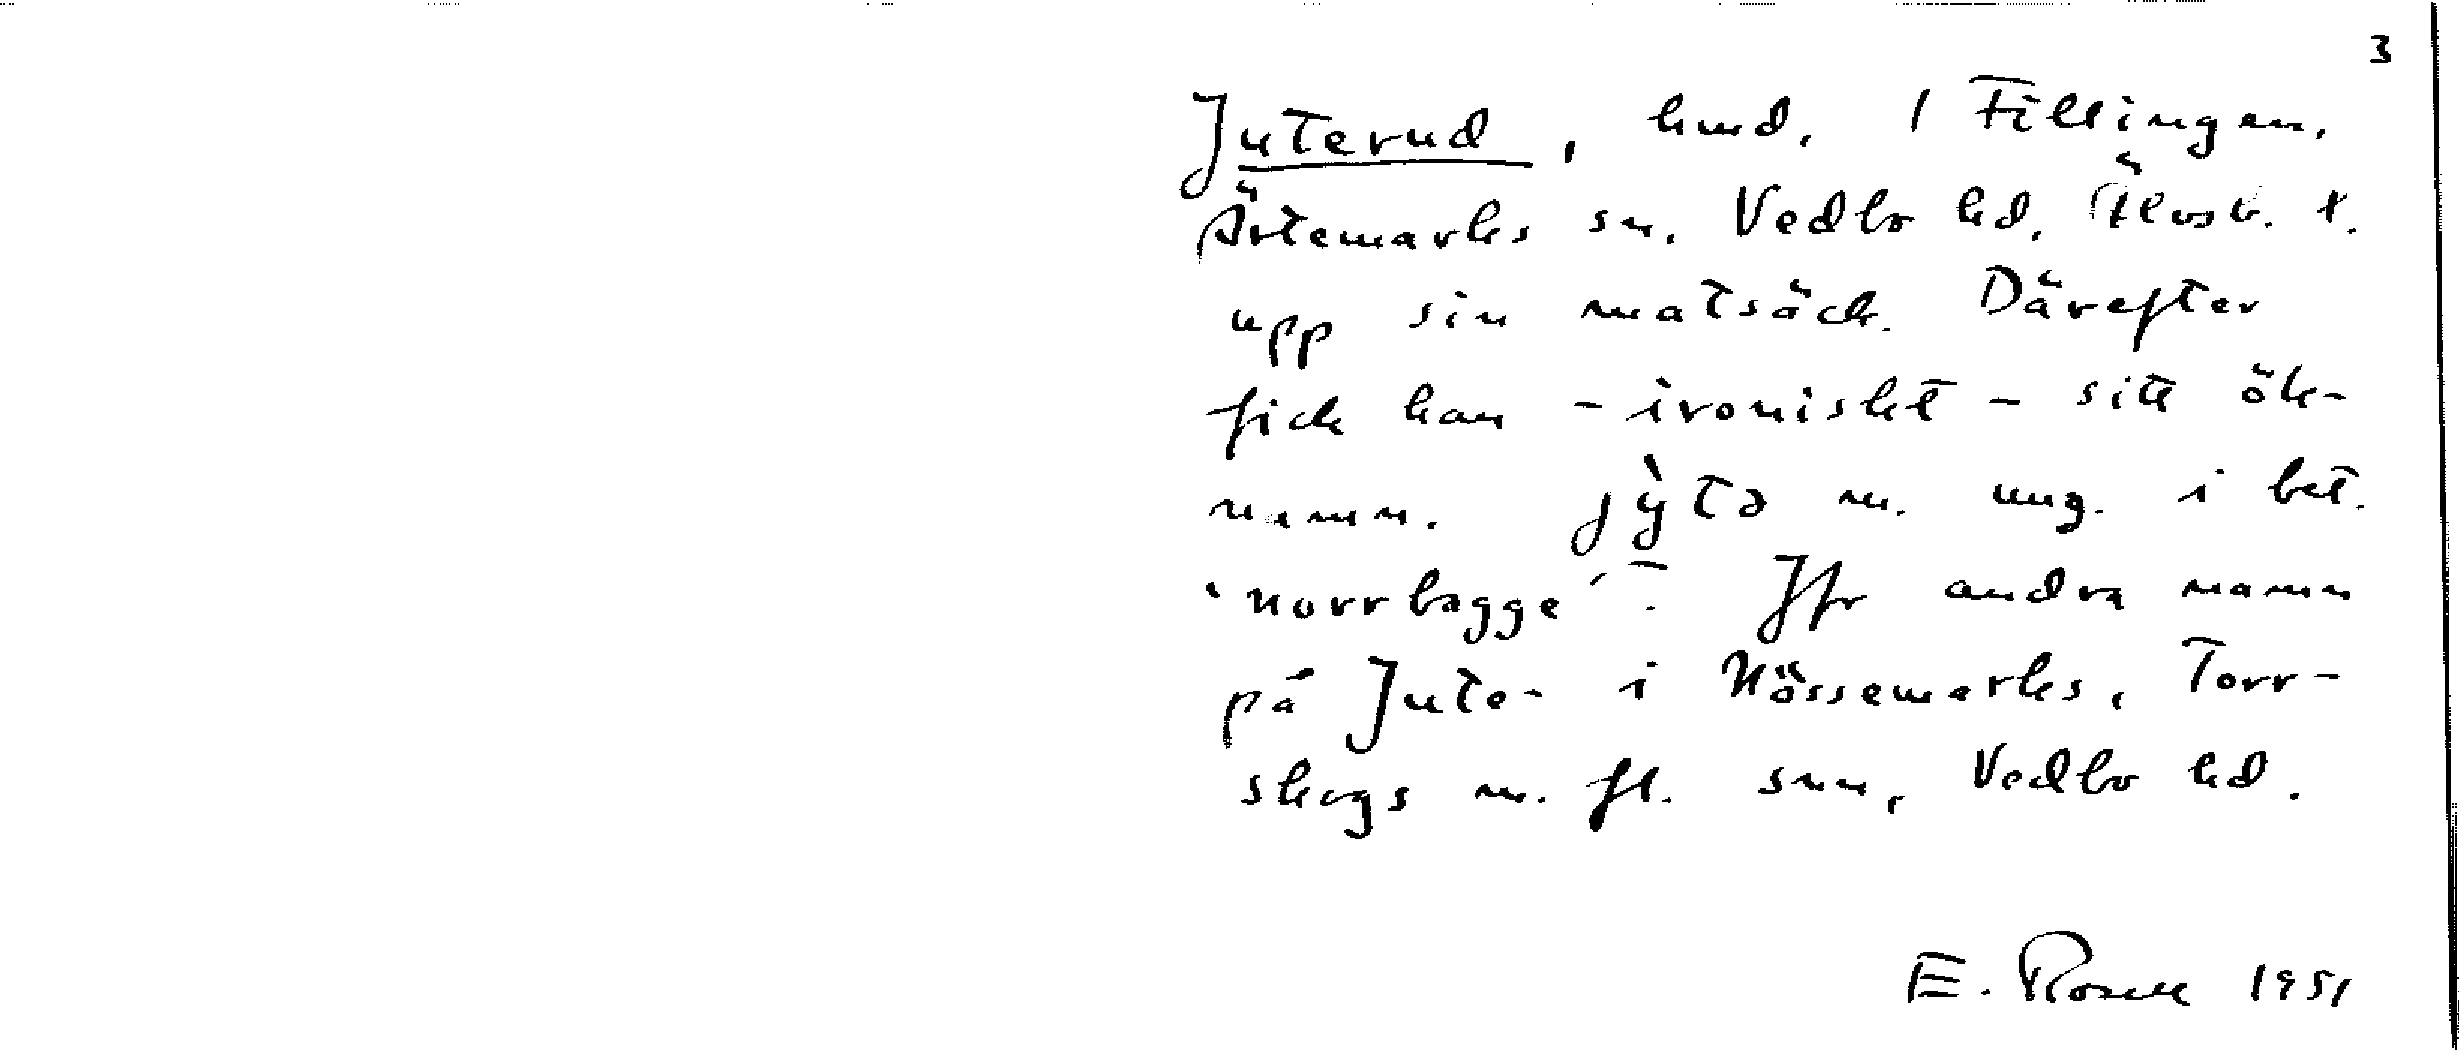 3
Juterud, hmd. 1 Fillingen,
Ärtemarks sn. Vedbo hd, Älvsb. l.
upp sin matsäck. Därefter
fick han - ironiskt - sitt ök-
namn. jỳtə m. ung. i bet.
'norrbagge'. Jfr andra namn
på Jute- i Nössemarks, Torr-
skogs m. fl. snn, Vedbo hd.
E. Rosell 1951